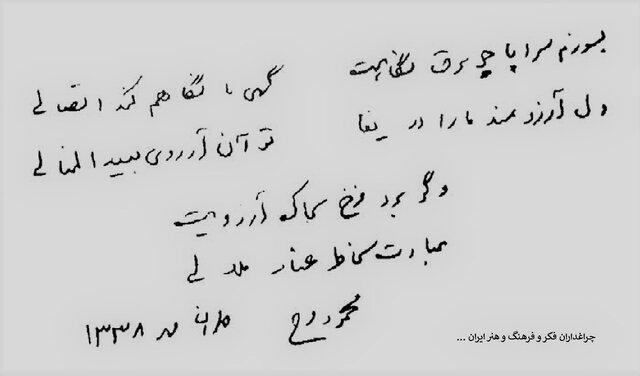 بسوزم سراپا چو برق نگاهت گهی با نگاهم کند اتصالی
دل آرزومند ما را دریغا تو آن آرزوی بعید المنالی
وگر برد فرخ بخاک آرزویت
مبادت بخاطر غبار ملالی
محمود فرخ مهر ۱۳۳۸
چراغداران فکر و فرهنگ و هنر ایران ...